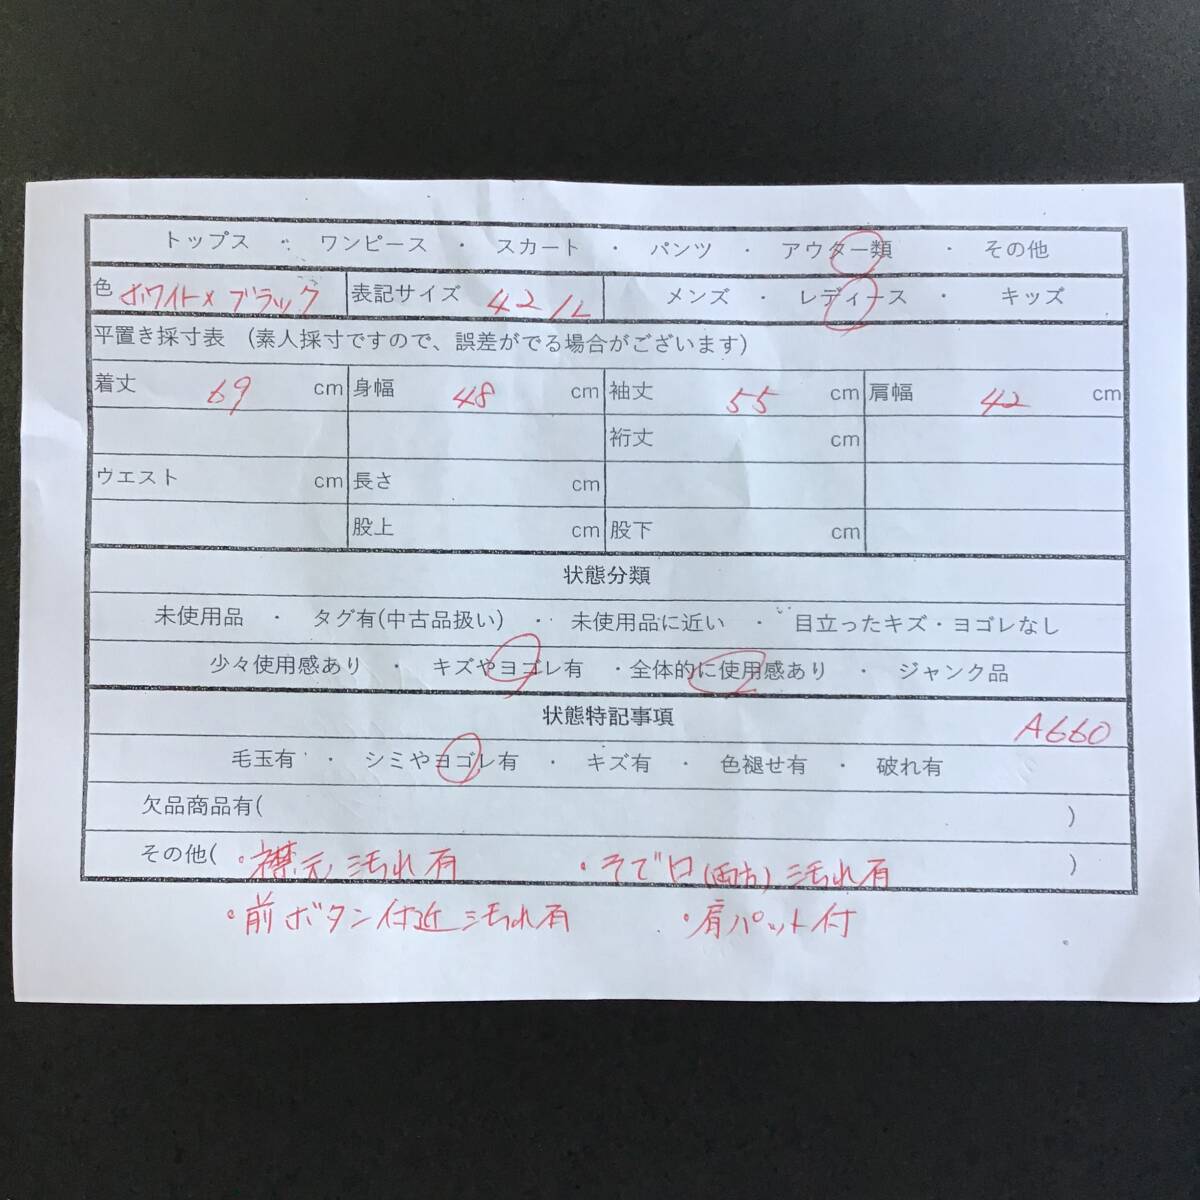 トップス ・ ワンピース ・ スカート ・ パンツ ・ アウター類 ・ その他
色 ホワイト×ブラック 表記サイズ 42/L メンズ ・ レディース ・ キッズ
平置き採寸表 (素人採寸ですので、誤差がでる場合がございます)
着丈 69 cm 身幅 48 cm 袖丈 55 cm 肩幅 42 cm
裄丈 cm
ウエスト cm 長さ cm
股上 cm 股下 cm
状態分類
未使用品 ・ タグ有(中古品扱い) ・ 未使用品に近い ・ 目立ったキズ・ヨゴレなし
少々使用感あり ・ キズやヨゴレ有 ・全体的に使用感あり ・ ジャンク品
状態特記事項 A660
毛玉有 ・ シミやヨゴレ有 ・ キズ有 ・ 色褪せ有 ・ 破れ有
欠品商品有( )
その他( ・襟元 汚れ有 ・そで口(両方)汚れ有 )
・前ボタン付近汚れ有 ・肩パット付